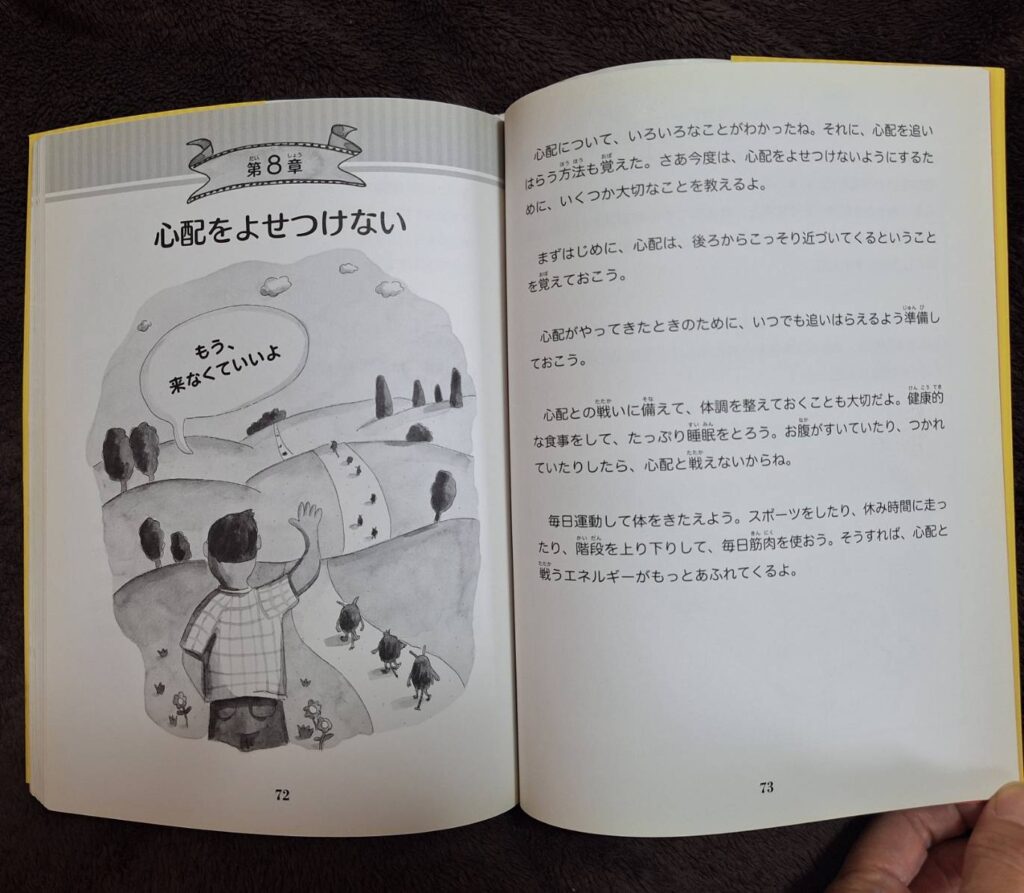 第8章
心配をよせつけない
もう、
来なくていいよ
72
心配について、いろいろなことがわかったね。それに、心配を追い
はらう方法も覚えた。さあ今度は、心配をよせつけないようにするた
めに、いくつか大切なことを教えるよ。
まずはじめに、心配は、後ろからこっそり近づいてくるということ
を覚えておこう。
心配がやってきたときのために、いつでも追いはらえるよう準備し
ておこう。
心配との戦いに備えて、体調を整えておくことも大切だよ。健康的
な食事をして、たっぷり睡眠をとろう。お腹がすいていたり、つかれ
ていたりしたら、心配と戦えないからね。
毎日運動して体をきたえよう。スポーツをしたり、休み時間に走っ
たり、階段を上り下りして、毎日筋肉を使おう。そうすれば、心配と
戦うエネルギーがもっとあふれてくるよ。
73